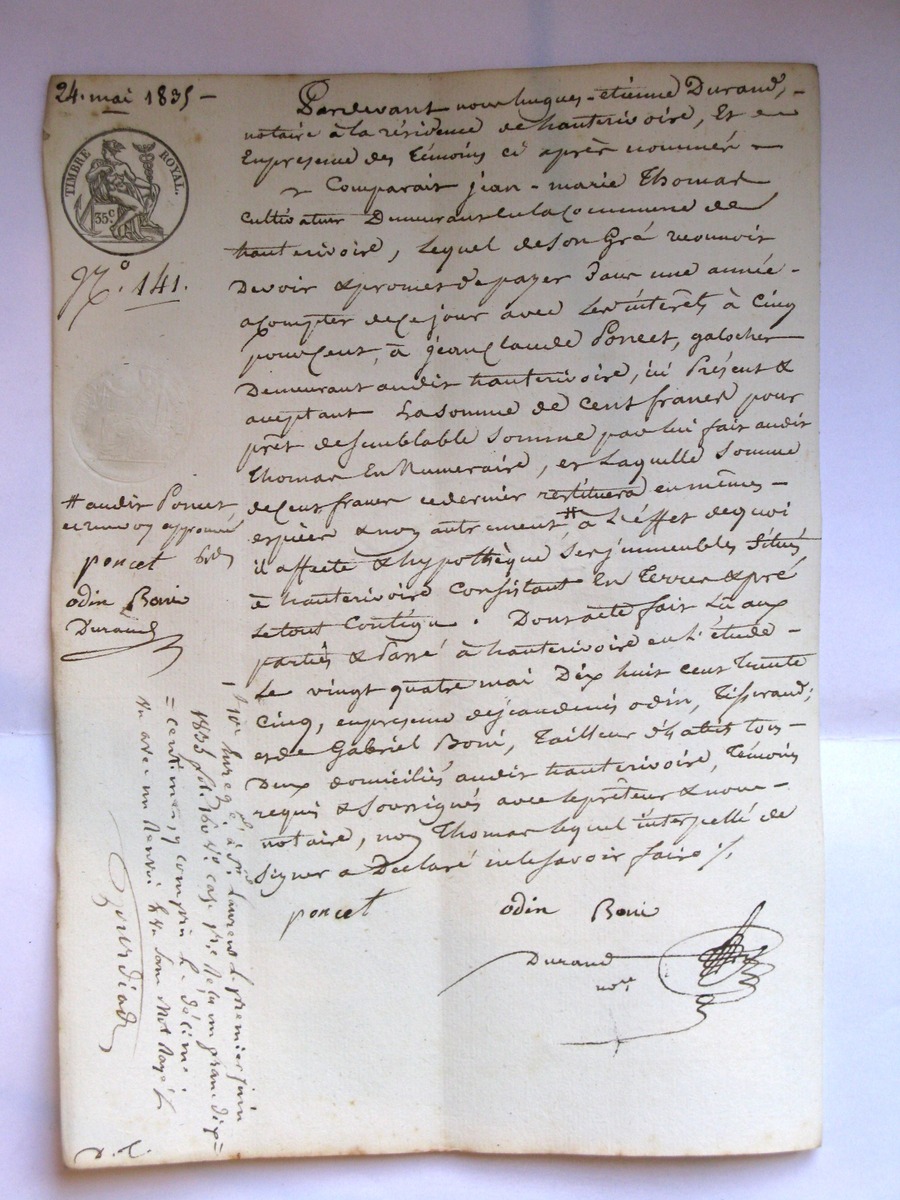 24. mai 1835 —
TIMBRE ROYAL.
35c
No. 141.
Pardevant nous hugues-étienne Durand, -
notaire à la résidence de hauterivoire, Et en
En présence des Témoins ci après nommés -
Comparait jean-marie Thomas
Cultivateur Demeurant en la Commune de
hauterivoire, Lequel de son Gré reconnoit
Devoir & promet de payer dans une année -
a compter de ce jour avec Les intérêts à Cinq
pour Cent, à jean Claude Poncet, galocher
Demeurant audit hauterivoire, ici Présent &
aceptant La somme de Cent francs pour
prêt de Semblable Somme par lui fait audit
Thomas En Numeraire, et Laquelle Somme
de Cent francs ce dernier restituera en mêmes -
espèces & non autrement # à L'effet de quoi
il affecte & hypothèque Ses immeubles Situés
à hauterivoire Consistant En Terres & pré
Le tout Contigu. Dont acte fait Lû aux
parties & Passé à hauterivoire en L'étude -
Le vingt quatre mai Dix huit cent trente
Cinq, en présence de jean denis odin, Tisserand;
et de Gabriel Boni, Tailleur d'habits tous -
Deux domiciliés audit hauterivoire, Témoins
requis & Soussignés avec le prêteur & nous -
notaire, non Thomas Lequel interpellé de
Signer a Déclaré ne le savoir faire ./.
poncet odin Boni
Durand
nore
# audit Poncet
et renvoy approuvé
poncet
odin Boni
Durand
à St. Laurent Le premier juin
1835 fol. 160 Vo. Case reçu un franc dix =
= centimes, y compris Le décime